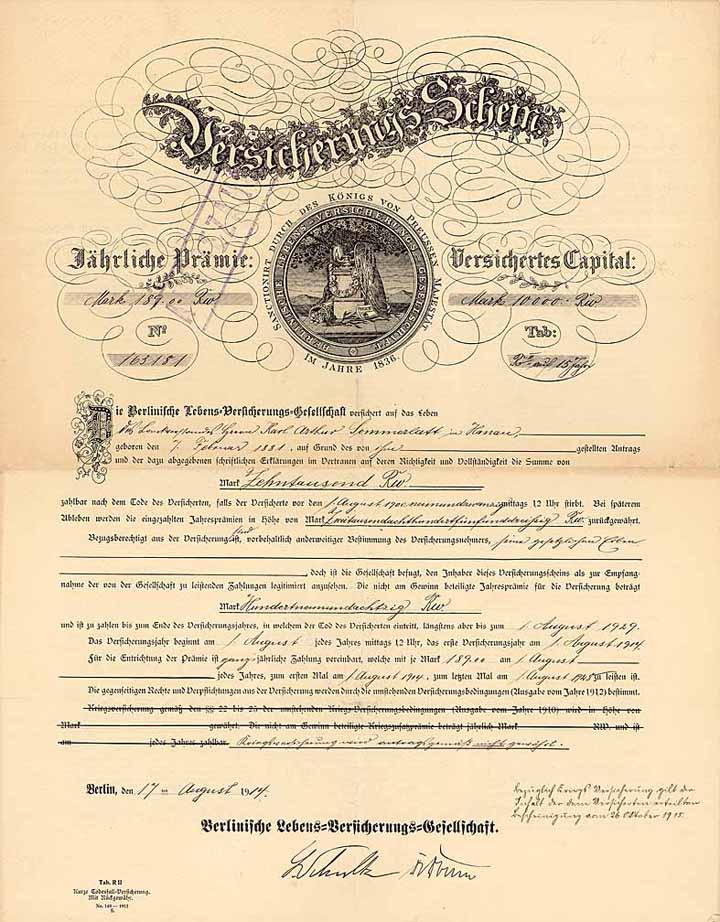 Versicherungs Schein
SANCTIONIRT DURCH DES KÖNIGS VON PREUSSEN MAJESTÄT
IM JAHRE 1836.
BERLINISCHE LEBENS-VERSICHERUNGS-GESELLSCHAFT
Jährliche Prämie:
Mark 189.00
Versichertes Capital:
Mark 10000.-
No
163181
Tab:
auf 15 Jahr
Die Berlinische Lebens-Versicherungs-Gesellschaft versichert auf das Leben
des Herrn Karl Arthur Sommerlatt in Hanau,
geboren den 7. Februar 1881. auf Grund des von ihm gestellten Antrags
und der dazu abgegebenen schriftlichen Erklärungen im Vertrauen auf deren Richtigkeit und Vollständigkeit die Summe von
Mark Zehntausend
zahlbar nach dem Tode des Versicherten, falls der Versicherte vor dem 1. August mittags 12 Uhr stirbt. Bei späterem
Ableben werden die eingezahlten Jahresprämien in Höhe von Mark Zweitausendachthundertfünfunddreißig zurückgewährt.
Bezugsberechtigt aus der Versicherung sind, vorbehaltlich anderweitiger Bestimmung des Versicherungsnehmers, seine gesetzlichen Erben
, doch ist die Gesellschaft befugt, den Inhaber dieses Versicherungsscheins als zur Empfang-
nahme der von der Gesellschaft zu leistenden Zahlungen legitimiert anzusehen. Die nicht am Gewinn beteiligte Jahresprämie für die Versicherung beträgt
Mark Hundertneunundachtzig
und ist zu zahlen bis zum Ende des Versicherungsjahres, in welchem der Tod des Versicherten eintritt, längstens aber bis zum 1. August 1929.
Das Versicherungsjahr beginnt am 1. August jedes Jahres mittags 12 Uhr, das erste Versicherungsjahr am 1. August 1914.
Für die Entrichtung der Prämie ist ganzjährliche Zahlung vereinbart, welche mit je Mark 189.00 am 1. August
jedes Jahres, zum ersten Mal am 1. August 1914. zum letzten Mal am 1. August zu leisten ist.
Die gegenseitigen Rechte und Verpflichtungen aus der Versicherung werden durch die umstehenden Versicherungsbedingungen (Ausgabe vom Jahre 1912) bestimmt.
Kriegsversicherung gemäß den §§ 22 bis 25 der umstehenden Kriegs-Versicherungsbedingungen (Ausgabe vom Jahre 1910) wird in Höhe von
Mark gewährt. Die nicht am Gewinn beteiligte Kriegszusatzprämie beträgt jährlich Mark und ist
am jedes Jahres zahlbar. Kriegsversicherung wird antragsgemäß nicht gewährt.
Berlin, den 17ten August 1914.
bezüglich Kriegs Versicherung gilt der
Inhalt der dem Versicherten erteilten
Bescheinigung vom 26 Oktober 1915.
Berlinische Lebens-Versicherungs-Gesellschaft.
Tab. R II
Kurze Todesfall-Versicherung.
Mit Rückgewähr.
No. 140 — 1912